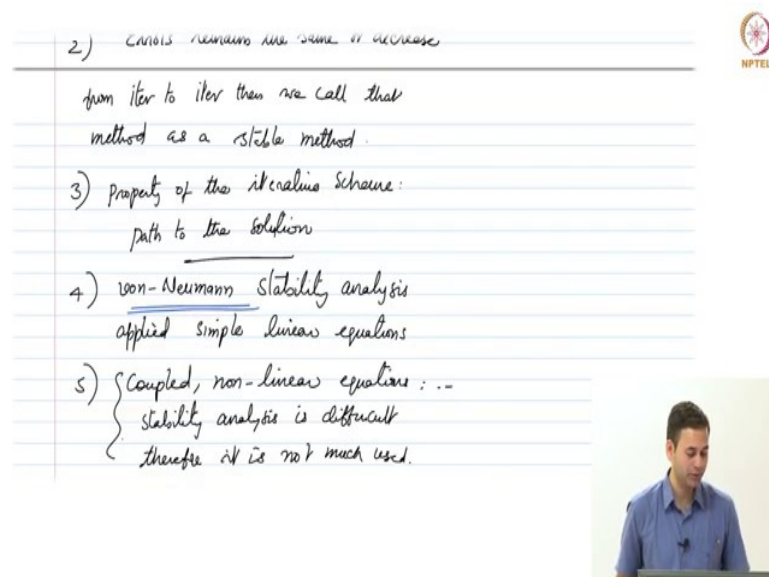 2) Errors remains the same or decrease
NPTEL
from iter to iter then we call that
method as a stable method.
3) Property of the iterative scheme:
path to the solution
4) von-Neumann stability analysis
applied simple linear equations
5) Coupled, non-linear equations: ..
stability analysis is difficult
therefore it is not much used.